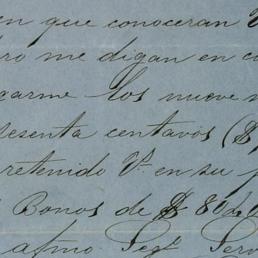 en que conoceran V
ro me digan en c
carme los nueve n
esenta centavos ($
retenido Vs. en su p
Bonos de $ 80
afmo Segº Serv